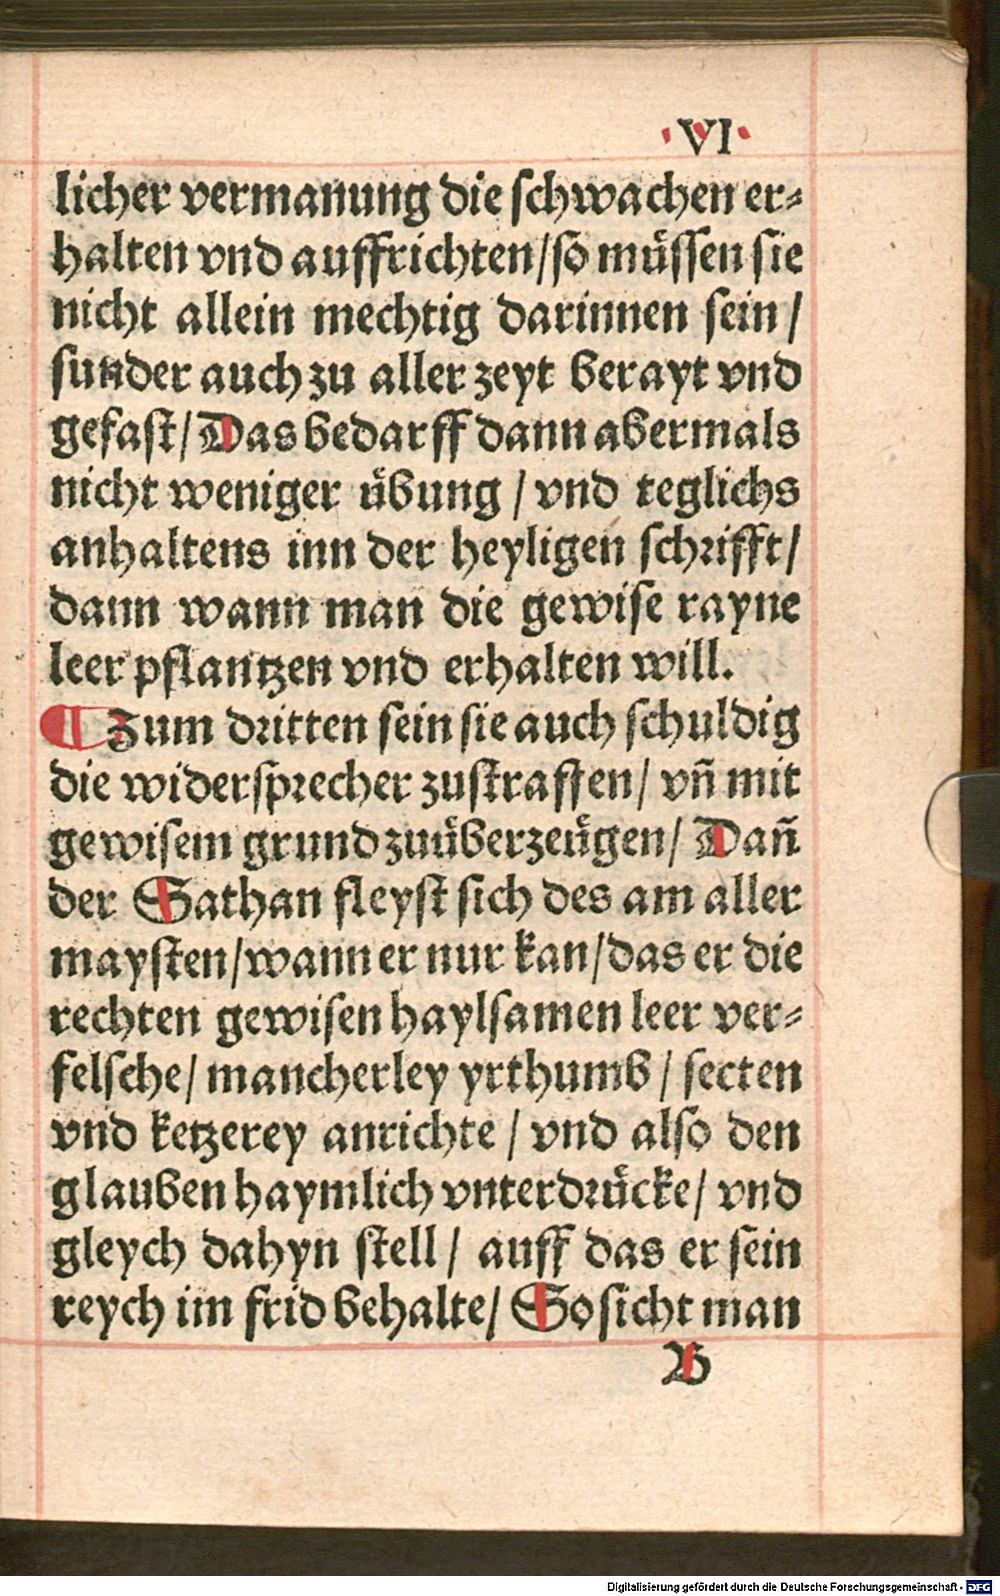 ·VI·
licher vermanung die schwachen er⸗
halten vnd auffrichten/so müssen sie
nicht allein mechtig darinnen sein/
sunder auch zu aller zeyt berayt vnd
gefast/Das bedarff dann abermals
nicht weniger übung/vnd teglichs
anhaltens inn der heyligen schrifft/
dann wann man die gewise rayne
leer pflantzen vnd erhalten will.
¶ Zum dritten sein sie auch schuldig
die widersprecher zustraffen/ vñ mit
gewisem grund zuüberzeügen/ Dañ
der Sathan fleyst sich des am aller
maysten/wann er nur kan/das er die
rechten gewisen haylsamen leer ver⸗
felsche/mancherley yrthumb/secten
vnd ketzerey anrichte/vnd also den
glauben haymlich vnterdrücke/ vnd
gleych dahyn stell/ auff das er sein
reych im frid behalte/ So sicht man
B
Digitalisierung gefördert durch die Deutsche Forschungsgemeinschaft - DFG